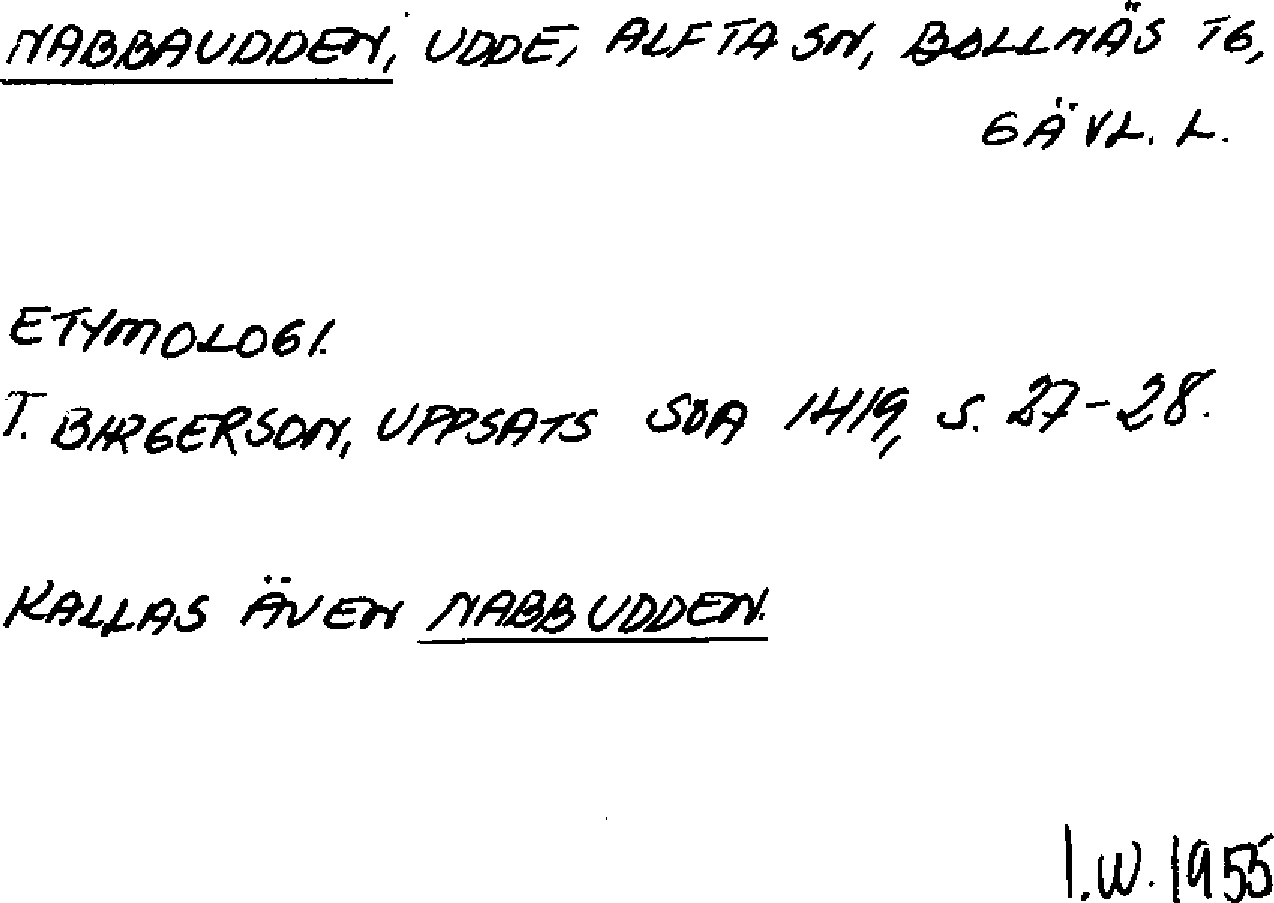 NABBAUDDEN, UDDE, ALFTA SN, BOLLNÄS TG,
GÄVL. L.
ETYMOLOGI.
T. BIRGERSON, UPPSATS SOA 1419, S. 27-28.
KALLAS ÄVEN NABBUDDEN.
I.W. 1955